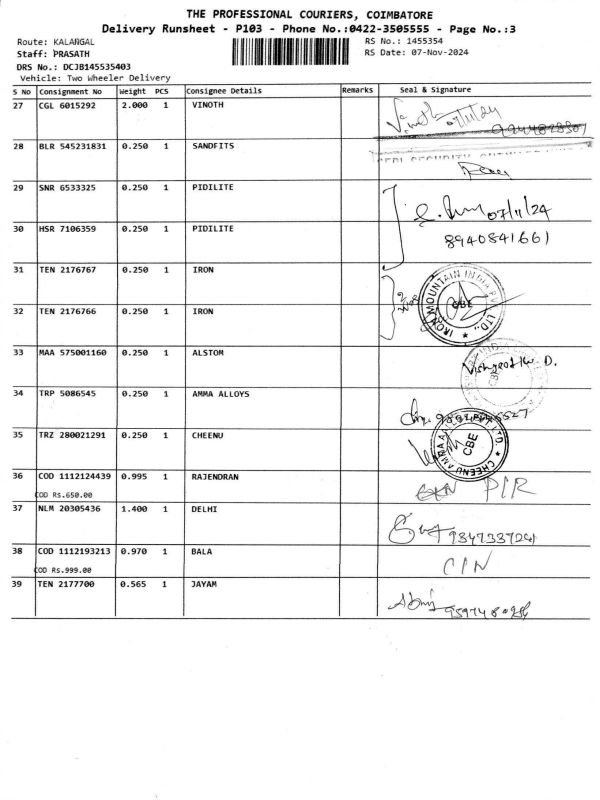 THE PROFESSIONAL COURIERS, COIMBATORE
Delivery Runsheet - P103 - Phone No.:0422-3505555 - Page No.:3
Route: KALANGAL
RS No.: 1455354
Staff: PRASATH
RS Date: 07-Nov-2024
DRS No.: DCJB145535403
Vehicle: Two Wheeler Delivery
S No Consignment No Weight PCS Consignee Details Remarks Seal & Signature
27 CGL 6015292 2.000 1 VINOTH Vinoth 07/11/24
28 BLR 545231831 0.250 1 SANDFITS
29 SNR 6533325 0.250 1 PIDILITE 07/11/24
30 HSR 7106359 0.250 1 PIDILITE 8940841661
31 TEN 2176767 0.250 1 IRON IRON MOUNTAIN INDIA PVT. LTD., CBE
32 TEN 2176766 0.250 1 IRON
33 MAA 575001160 0.250 1 ALSTOM D.
34 TRP 5086545 0.250 1 AMMA ALLOYS
35 TRZ 280021291 0.250 1 CHEENU CHEENU AMMA LTD. CBE
36 COD 1112124439 0.995 1 RAJENDRAN PIR
COD Rs.650.00
37 NLM 20305436 1.400 1 DELHI
38 COD 1112193213 0.970 1 BALA CIN
COD Rs.999.00
39 TEN 2177700 0.565 1 JAYAM